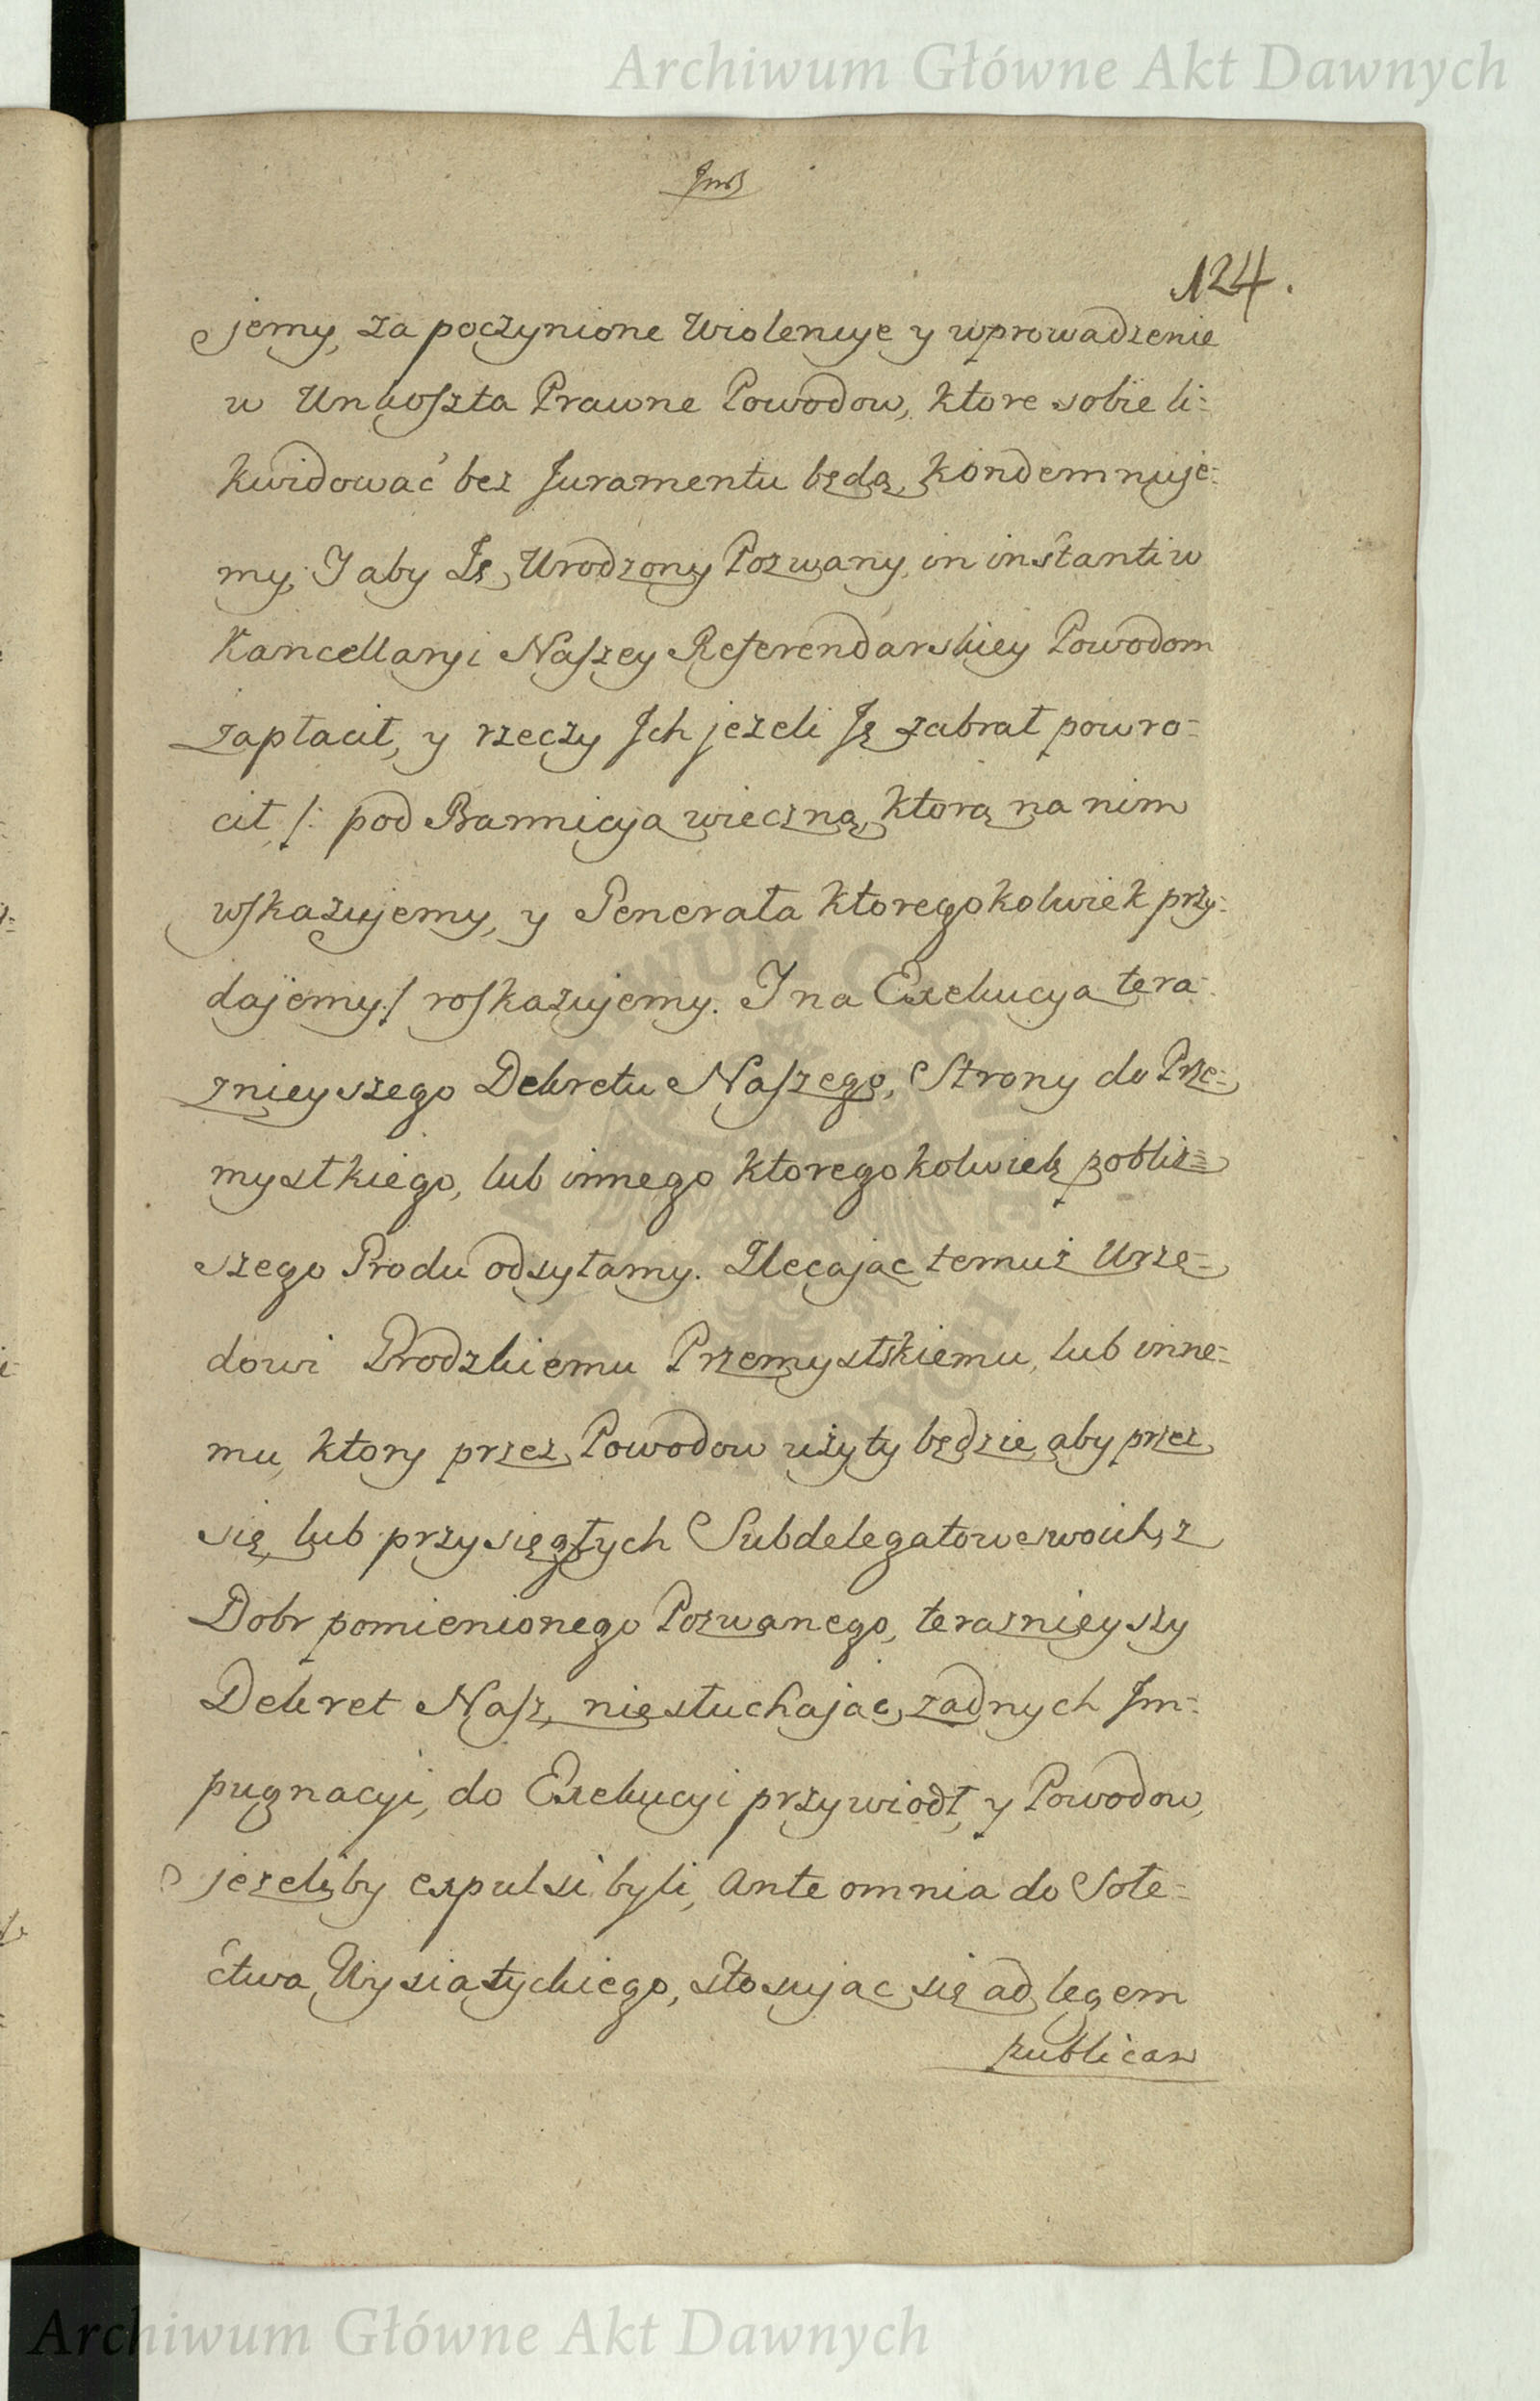 Archiwum Główne Akt Dawnych
124.
jemy, za poczynione Wiolencye y wprowadzenie
w Unkoszta Prawne Powodow, ktore sobie li=
kwidować bez Juramentu będą, kondemnuje=
my, Jaby Ię Urodzony Pozwany in instanti w
Kancellaryi Naszey Referendarskiey Powodom
zapłacił, y rzeczy Ich jezeli Ię zabrał powro=
cił /: pod Bannicyą wieczną, ktorą na nim
wskazujemy, y Generała ktoregokolwiek przy=
dajemy:/ roskazujemy. I na Exekucyą tera=
znieyszego Dekretu Naszego, Strony do Prze=
mysłkiego, lub innego ktoregokolwiek poblis=
szego Grodu odsyłamy. Zlecając temuż Urzę=
dowi Grodzkiemu Przemysłskiemu, lub inne=
mu, ktory przez Powodow użyty będzie, aby przez
się, lub przysięgłych Subdelegatow swoich, z
Dobr pomienionego Pozwanego, teraznieyszy
Dekret Nasz, niesłuchając żadnych Im=
pugnacyi, do Exekucyi przywiodł, y Powodow,
jezeliby expulsi byli, Ante omnia do Sołe=
ctwa Wysiatyckiego, stosując się ad legem
publicam
Archiwum Główne Akt Dawnych